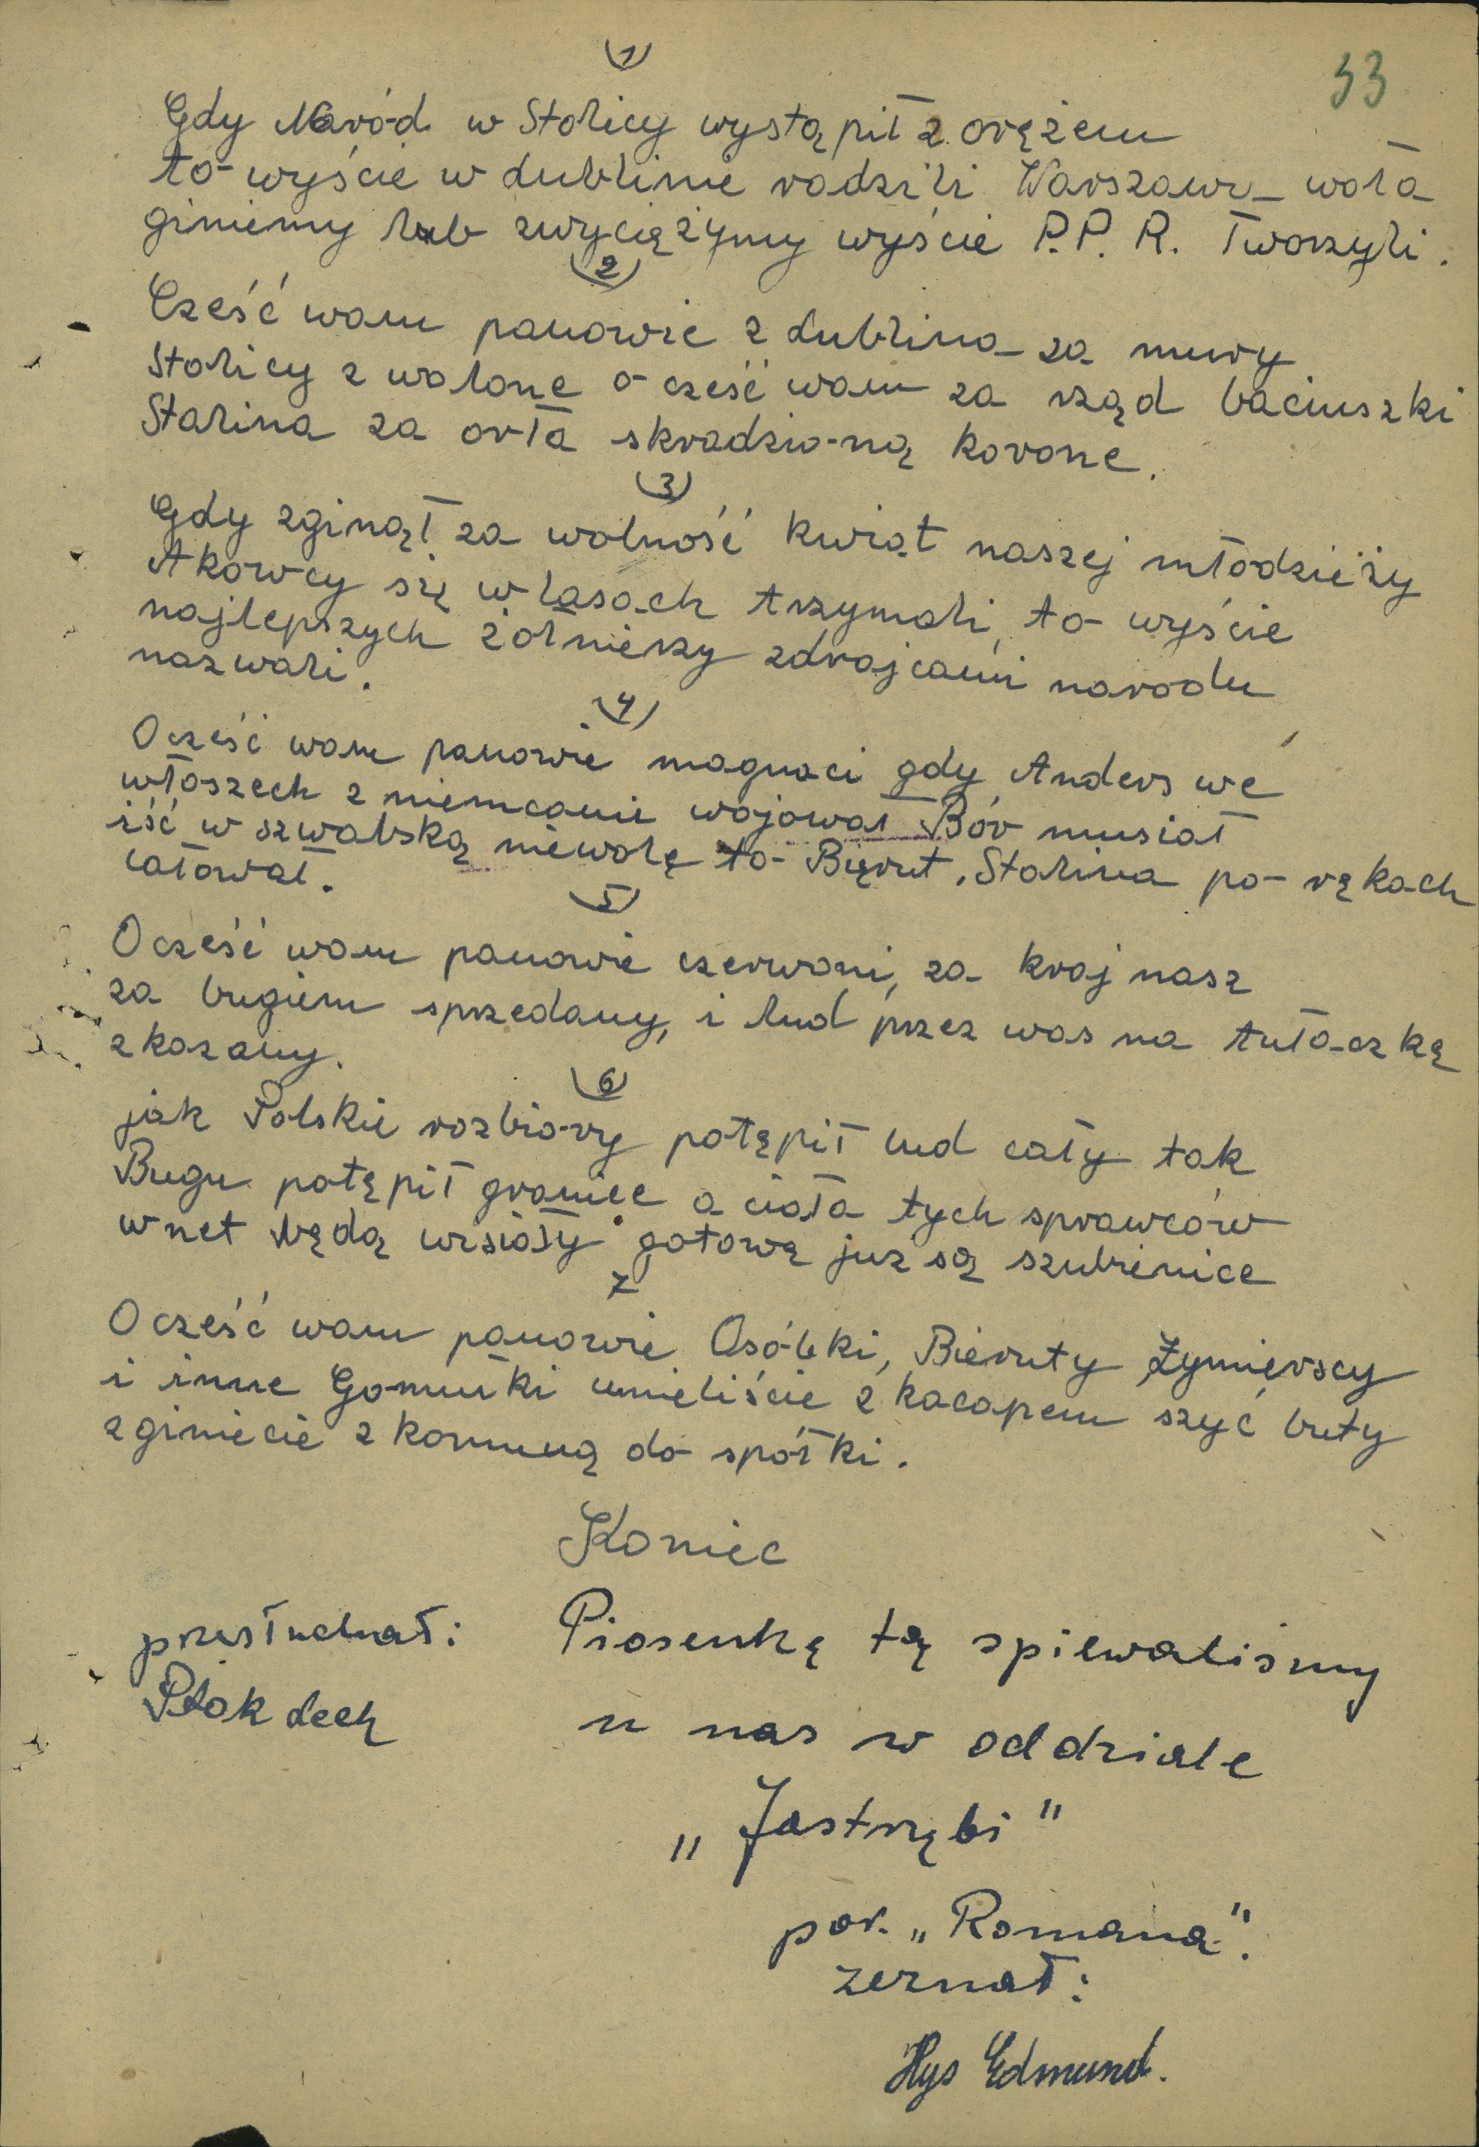 (1)
33
Gdy Naród w Stolicy wystąpił z orężem
to wyście w Lublinie radzili Warszawa woła
giniemy lub zwyciężymy wyście P.P.R. Tworzyli.
(2)
Cześć wam panowie z Lublina za mury
Stolicy zwalone o cześć wam za rząd baciuszki
Stalina za orła skradzioną korone.
(3)
Gdy zginął za wolność kwiat naszej młodzieży
Akowcy się w lasach trzymali, to wyście
najlepszych żołnierzy zdrajcami narodu
nazwali.
(4)
O cześć wam panowie magnaci gdy Anders we
włoszech z niemcami wojował Bór musiał
iść w szwabską niewolę to Bierut, Stalina po rękach
całował.
5)
O cześć wam panowie czerwoni, za kraj nasz
za bugiem sprzedany, i lud przez was na tułaczkę
zkazany.
(6)
jak Polskie rozbiory potępił lud cały tak
Bugu potępił granice a ciała tych sprawców
wnet będą wisiały gotowę już są szubienice
7
O cześć wam panowie Osóbki, Bieruty Żymierscy
i inne Gomułki umieliście z kacapem szyć buty
zginiecie z komuną do spółki.
Koniec
przesłuchał:
Ptak Lech
Piosenkę tą spiewaliśmy
u nas w oddziale
„Jastrzębi"
por. „Romana".
zeznał:
Hys Edmund.